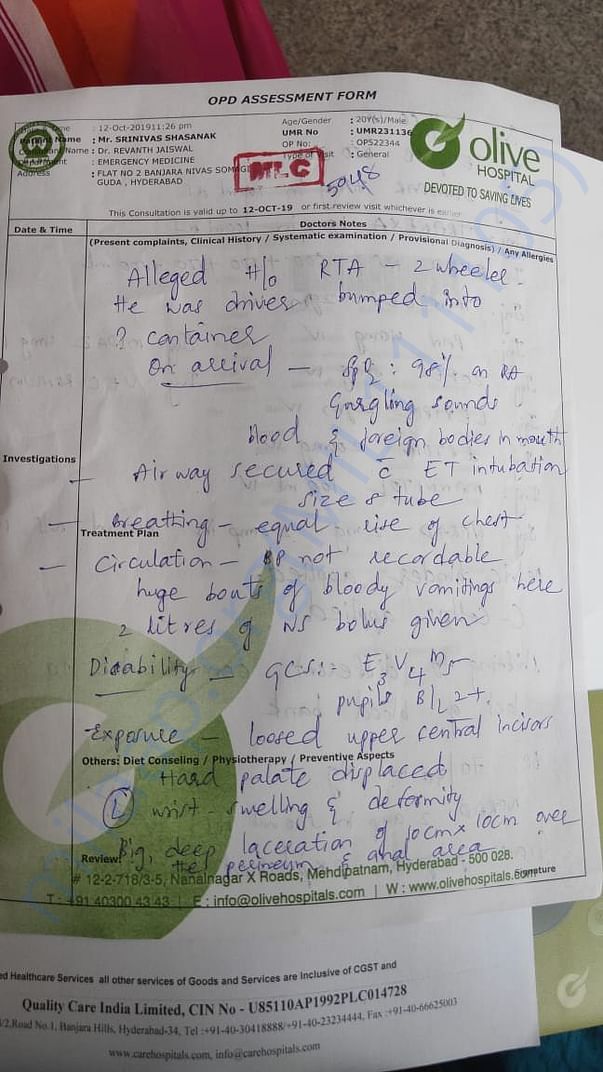 OPD ASSESSMENT FORM
: 12-Oct-201911:26 pm
Age/Gender : 20Y(s)/Male
Name : Mr. SRINIVAS SHASANAK
UMR No : UMR231136
Name : Dr. REVANTH JAISWAL
OP No: : OP522344
: EMERGENCY MEDICINE
Type of Visit : General
Address : FLAT NO 2 BANJARA NIVAS
GUDA , HYDERABAD
MLC
5948
olive
HOSPITAL
DEVOTED TO SAVING LIVES
This Consultation is valid up to 12-OCT-19 or first review visit whichever is earlier
Date & Time
Doctors Notes
(Present complaints, Clinical History / Systematic examination / Provisional Diagnosis) / Any Allergies
Alleged H/o RTA - 2 wheeler.
He was drives bumped into
? container
On arrival - SpO2 : 98% on RA
Gargling sounds
blood & foreign bodies in mouth
Investigations
- Airway secured c̄ ET intubation
size 8 tube
- Breathing - equal rise of chest
Treatment Plan
- Circulation - BP not recordable
huge bouts of bloody vomitings here
2 litres of NS bolus given
Disability - GCS:- E3 V4 M5
pupils B/L 2+.
Exposure - loosed upper central incisors
Others: Diet Conseling / Physiotherapy / Preventive Aspects
Hard palate displaced
(L) wrist - swelling & deformity
Big, deep laceration of 10cm x 10cm over
the perineum & anal area
Review:
Signature
# 12-2-718/3-5, Nanalnagar X Roads, Mehdipatnam, Hyderabad - 500 028.
T : +91 40300 43 43 | E : info@olivehospitals.com | W : www.olivehospitals.com
ed Healthcare Services all other services of Goods and Services are Inclusive of CGST and
Quality Care India Limited, CIN No - U85110AP1992PLC014728
/2,Road No.1, Banjara Hills, Hyderabad-34, Tel :+91-40-30418888/+91-40-23234444, Fax :+91-40-66625003
www.carehospitals.com, info@carehospitals.com